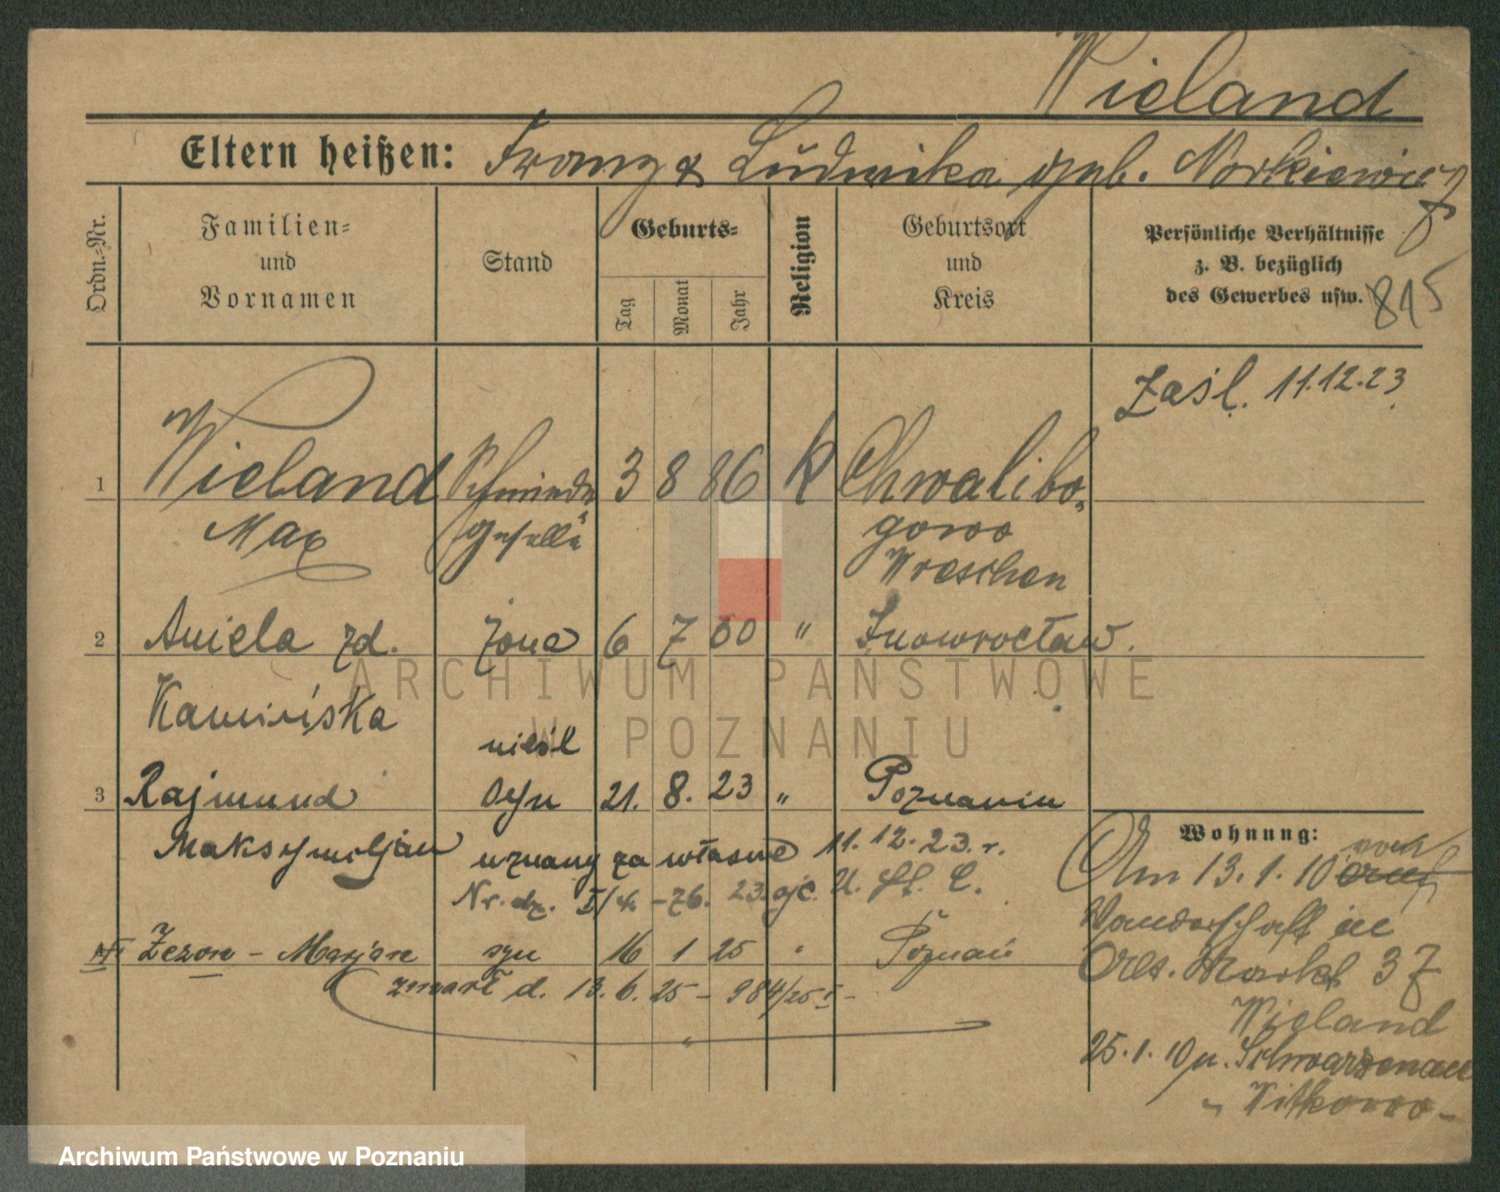 Wieland
Eltern heißen: Franz & Ludwika geb. Norkiewicz
Ordn.-Nr.
Familien-
und
Vornamen
Stand
Geburts-
Tag
Monat
Jahr
Religion
Geburtsort
und
Kreis
Persönliche Verhältnisse
z. B. bezüglich
des Gewerbes usw.
815
Zaśl. 11.12.23
1 Wieland Schmiede 3 8 86 k Chwalibo-
Max geselle gowo
Wreschen
2 Aniela zd. żona 6 7 00 " Inowrocław.
Kamińska
nieśl
3 Rajmund syn 21. 8. 23 " Poznaniu
Maksymiljan uznany za własne 11. 12. 23. r.
Nr. dz. I/4. -76. 23. U. St. C.
Zezon - Marjan syn 16 1 25 " Poznań
zmarł d. 13. 6. 25 - 984/25 I -
Wohnung:
Am 13.1.10 noch
Wanderschaft in
Markt 37
Wieland
25.1.10 n. Schwarzenau
" Witkowo -
ARCHIWUM PAŃSTWOWE
W POZNANIU
Archiwum Państwowe w Poznaniu